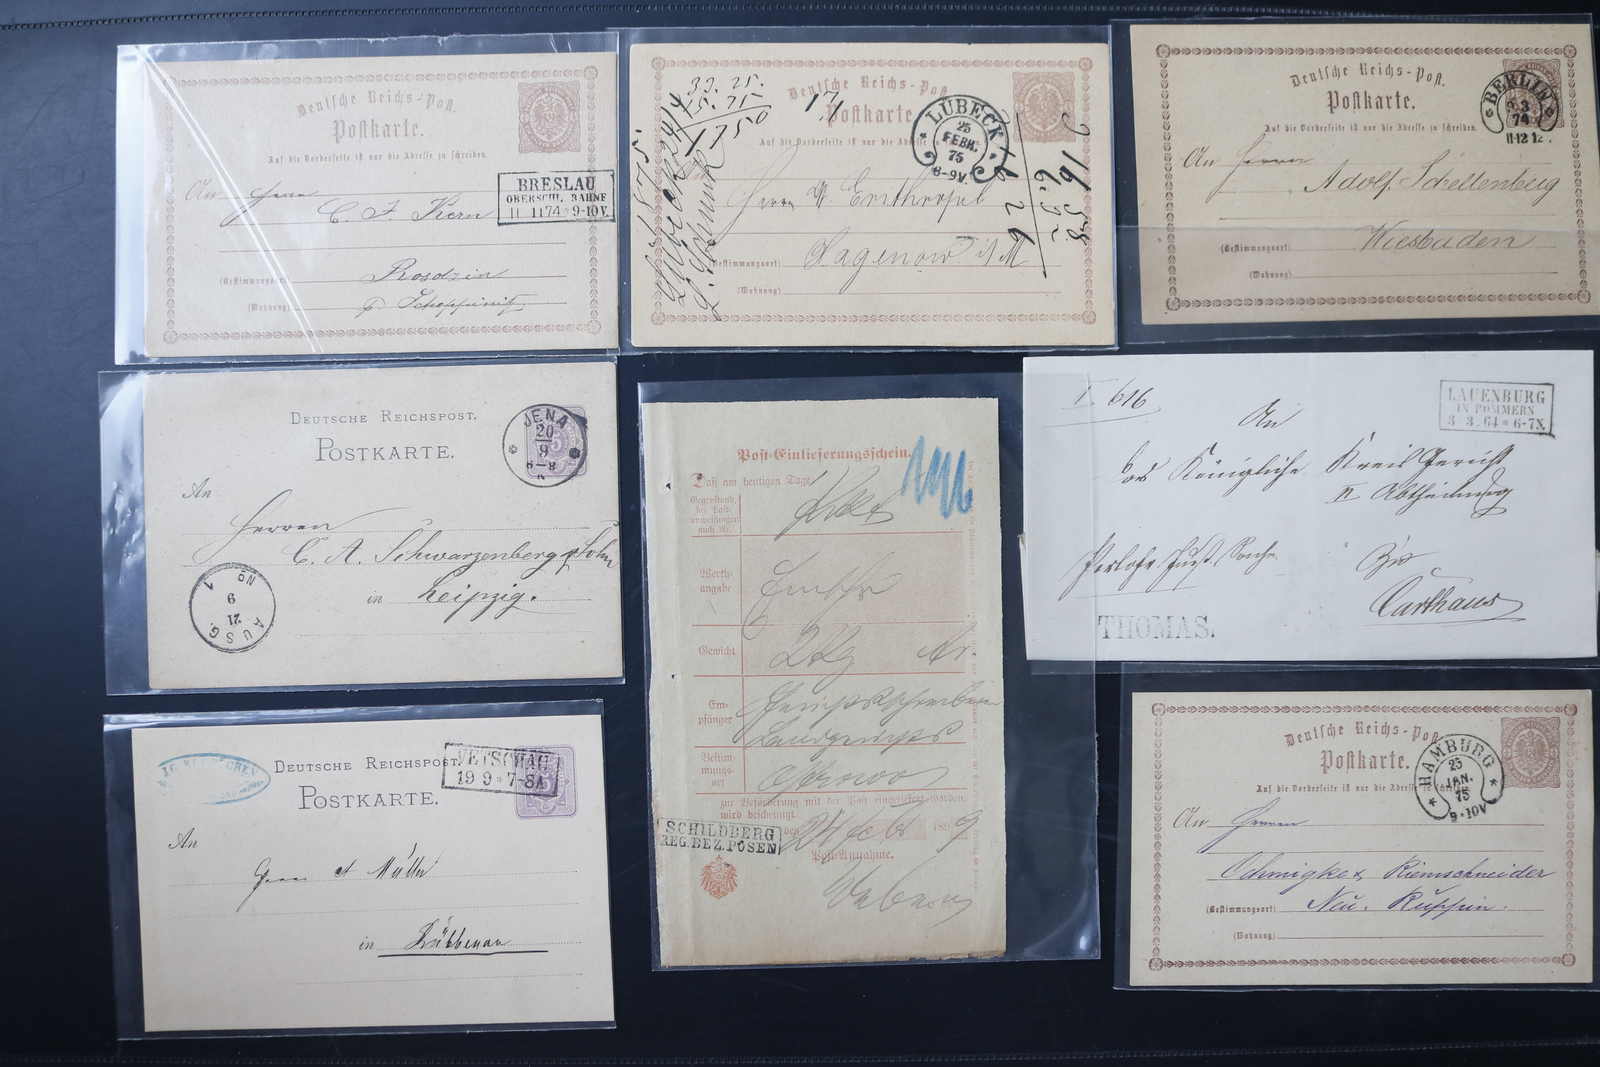 Deutsche Reichs-Post.
Postkarte.
Auf die Vorderseite ist nur die Adresse zu schreiben.
BRESLAU
OBERSCHL. BAHNF
11 11 74 * 9-10V.
An Herrn
C. F. Kern
(Bestimmungsort) Rosdzin
(Wohnung)
33. 25.
15. 75
17 50
171
Deutsche Reichs-Post.
Postkarte.
Auf die Vorderseite ist nur die Adresse zu
LÜBECK
25
FEBR.
75
8-9V.
Herrn
Hagenow i/M
Bestimmungsort)
(Wohnung)
Deutsche Reichs-Post.
Postkarte.
Auf die Vorderseite ist nur die Adresse zu schreiben.
BERLIN
2 3
74
11-12
An Herrn
Adolf Schellenberg
(Bestimmungsort) Wiesbaden
(Wohnung)
DEUTSCHE REICHSPOST.
POSTKARTE.
JENA
20
9
6-8
An
Herren
C. A. Schwarzenberg & Sohn
in Leipzig.
AUSG.
21
9
No 1
Post-Einlieferungsschein.
Daß am heutigen Tage
Gegenstand
Werth-
angabe
Gewicht
Em-
pfänger
Bestim-
mungs-
ort
zur Beförderung mit der Post eingeliefert worden,
wird bescheinigt.
SCHILDBERG
REG. BEZ. POSEN
den 24 Feb 189 9
Post-Annahme.
I. 616
LAUENBURG
IN POMMERN
3 3. 64 * 6-7N.
An
das Königliche Kreis Gericht
II Abtheilung
zu
Carthaus
THOMAS.
DEUTSCHE REICHSPOST.
POSTKARTE.
VETSCHAU
19 9 * 7-8A
An
Herrn A Müller
in Lübbenau
Deutsche Reichs-Post
Postkarte.
Auf die Vorderseite ist nur die Adresse zu schreiben.
HAMBURG
25
JAN.
75
9-10V
An Herren
Oehmigke & Riemschneider
(Bestimmungsort) Neu. Ruppin.
(Wohnung)